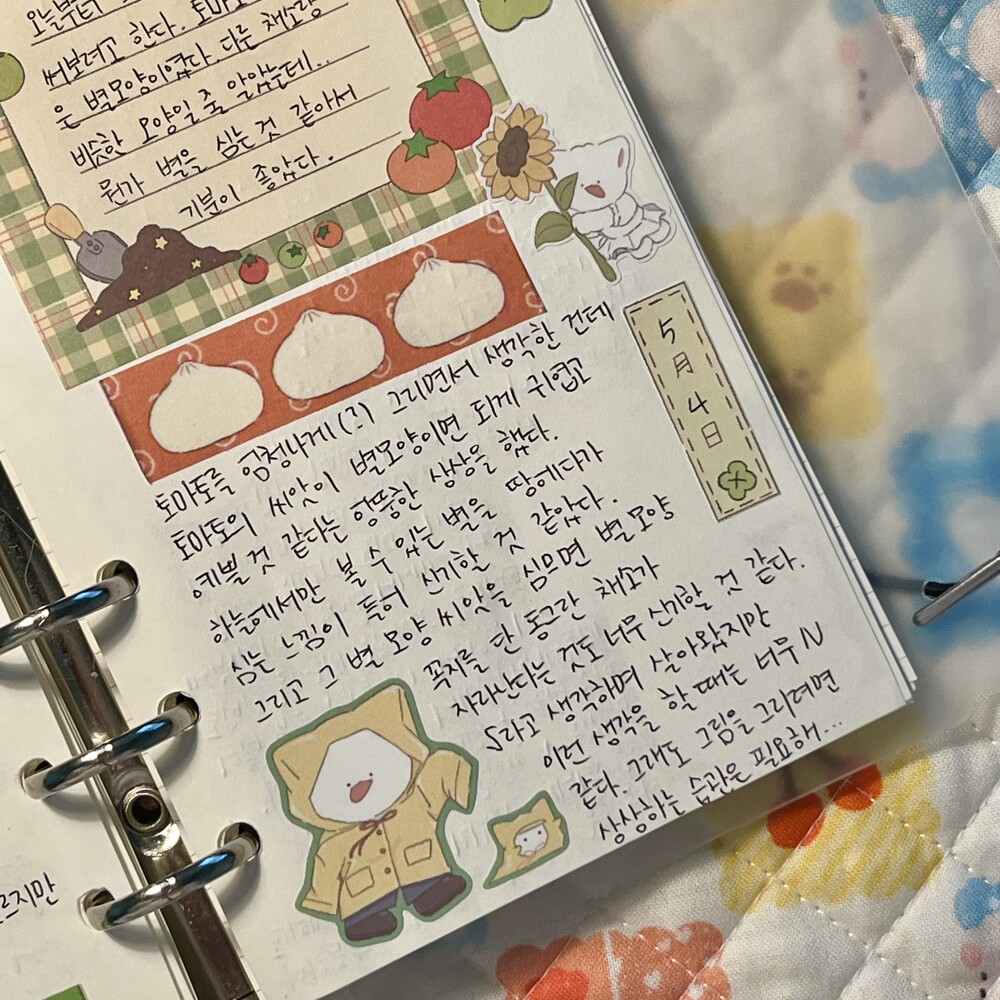 오늘부터
써보려고 한다. 토마
은 별모양이였다. 다른 채소랑
비슷한 모양일 줄 알았는데..
뭔가 별을 심는 것 같아서
기분이 좋았다.
5
月
4
日
토마토를 엄청나게(?) 그리면서 생각한 건데
토마토의 씨앗이 별모양이면 되게 귀엽고
예쁠 것 같다는 엉뚱한 상상을 했다.
하늘에서만 볼 수 있는 별을 땅에다가
심는 느낌이 들어 신기할 것 같았다.
그리고 그 별 모양 씨앗을 심으면 별 모양
꼭지를 단 동그란 채소가
자라난다는 것도 너무 신기할 것 같다.
S라고 생각하며 살아왔지만
이런 생각을 할 때는 너무 N
같다. 그래도 그림을 그리려면
상상하는 습관은 필요해...
르지만